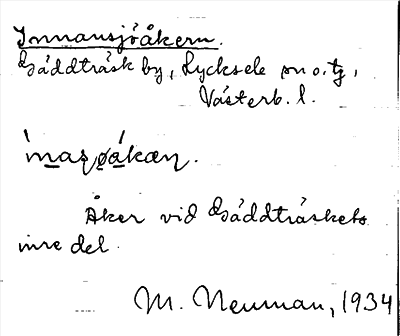 Innansjöåkern.
Gäddträsk by, Lycksele sn o. tg,
Västerb. l.
Åker vid Gäddträskets
inre del.
M. Neuman, 1934